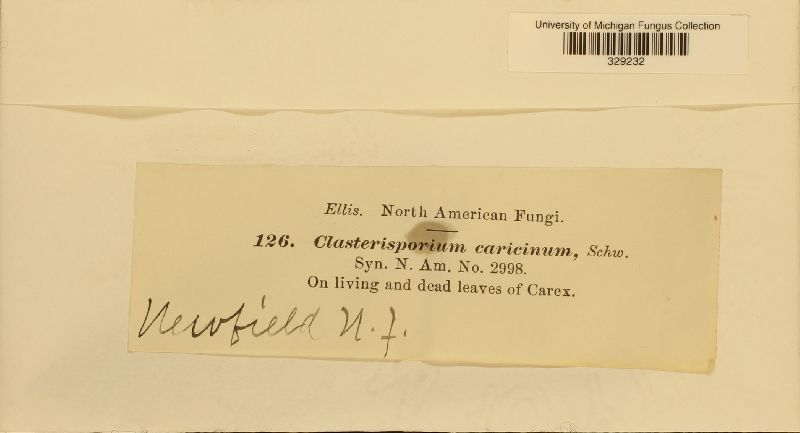 University of Michigan Fungus Collection
329232
Ellis. North American Fungi.
126. Clasterisporium caricinum, Schw.
Syn. N. Am. No. 2998.
On living and dead leaves of Carex.
Newfield N. J.